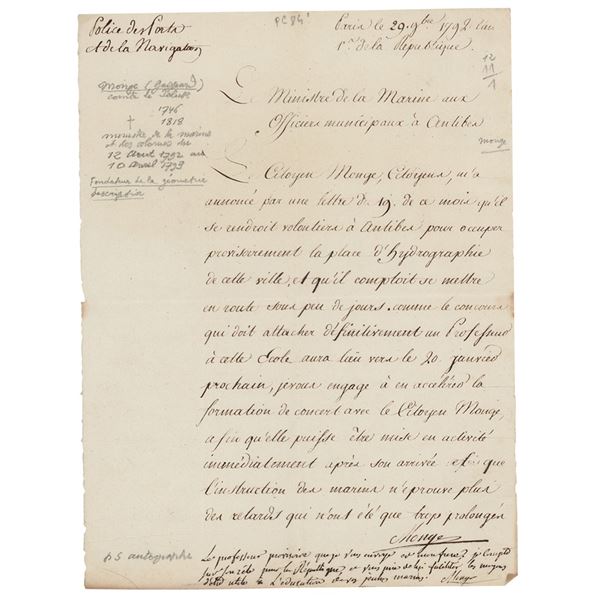 Police des Ports
et de la Navigation
PC 84
Paris le 29. 9bre 1792 L'an
1er de la République.
12
11
1
Monge (Gaspard)
comte de Péluse
1746
† 1818
ministre de la marine
et des colonies du
12 Aout 1792 au
10 Avril 1793
Fondateur de la géometrie
descriptive
Le Ministre de la Marine aux
Officiers municipaux à Antibes
Monge
Le Citoyen Monge, Citoyens, m'a
annoncé par une lettre du 19. de ce mois qu'il
se rendroit volontiers à Antibes pour occuper
provisoirement la place d'Hydrographie
de cette ville, et qu'il comptoit se mettre
en route sous peu de jours. comme le concours
qui doit attacher définitivement un Professeur
à cette Ecole aura lieu vers le 20 janvier
prochain, je vous engage à en accélérer la
formation de concert avec le Citoyen Monge,
afin qu'elle puisse être mise en activité
immédiatement après son arrivée et que
l'instruction des marins n'éprouve plus
des retards qui n'ont été que trop prolongés
Monge
PS autographe
Le professeur provisoire que je vous envoye est mon frere; je compte
sur son zele pour la République, et vous prie de lui faciliter les moyens
d'etre utile à l'education de vos jeunes marins. Monge